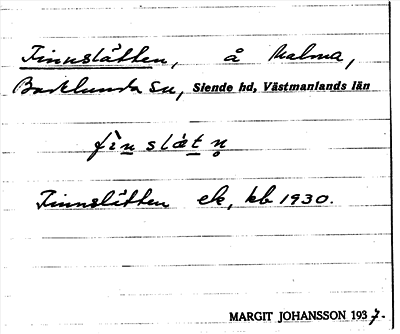 Finnslätten, å Malma,
Badelunda sn, Siende hd, Västmanlands län
fìn slǽt n̥
Finnslätten ek, kb 1930.
MARGIT JOHANSSON 1937-